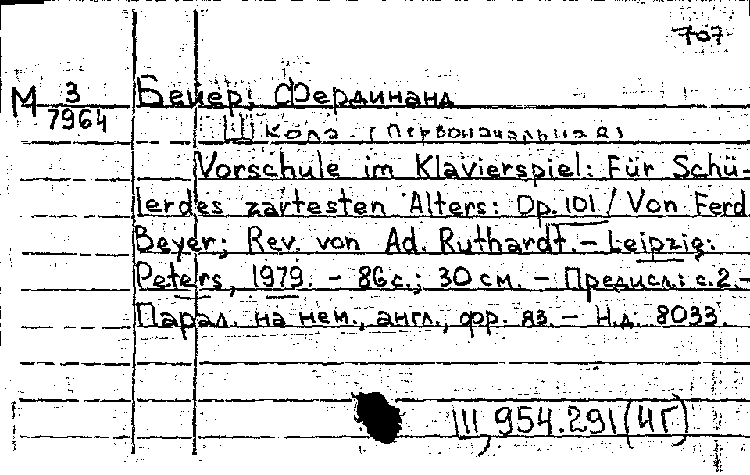 707
М 3/7964 Бейер, Фердинанд
Школа. (Первоначальная)
Vorschule im Klavierspiel: Für Schü-
lerdes zartesten Alters: Op. 101 / Von Ferd.
Beyer; Rev. von Ad. Ruthardt. – Leipzig:
Peters, 1979. – 86 с.; 30 см. – Предисл.: с. 2. –
Парал. на нем., англ., фр. яз. – Н.д. 8033.
III, 954.291 (4Г)